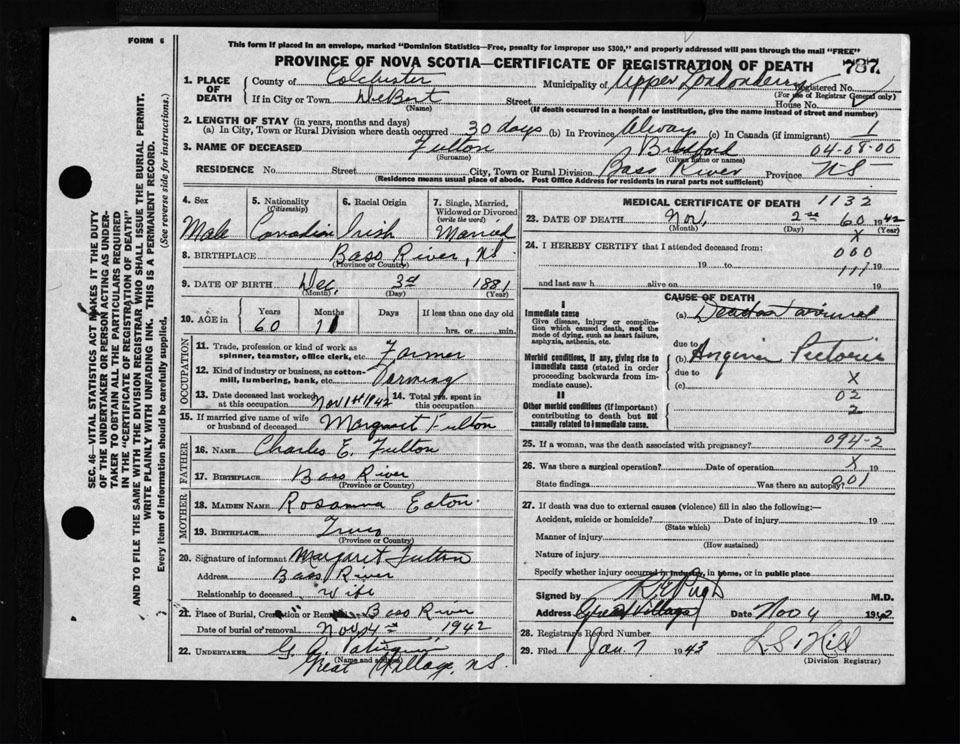 FORM 6
This form if placed in an envelope, marked "Dominion Statistics—Free, penalty for improper use $300," and properly addressed will pass through the mail "FREE"
PROVINCE OF NOVA SCOTIA—CERTIFICATE OF REGISTRATION OF DEATH 787.
1. PLACE OF DEATH
County of Colchester Municipality of Upper Londonderry
Registered No.
(For use of Registrar General only)
If in City or Town DeBert Street House No.
(Name) (If death occurred in a hospital or institution, give the name instead of street and number)
2. LENGTH OF STAY (in years, months and days)
(a) In City, Town or Rural Division where death occurred 30 days (b) In Province Always (c) In Canada (if immigrant) 1
3. NAME OF DECEASED Fulton Budford 04-08-00
(Surname) (Given name or names)
RESIDENCE No. Street City, Town or Rural Division Bass River Province N.S.
(Residence means usual place of abode. Post Office Address for residents in rural parts not sufficient)
4. Sex 5. Nationality (Citizenship) 6. Racial Origin 7. Single, Married, Widowed or Divorced (write the word)
Male Canadian Irish Married
8. BIRTHPLACE Bass River, N.S.
(Province or Country)
9. DATE OF BIRTH Dec. 3rd 1881
(Month) (Day) (Year)
10. AGE in Years Months Days If less than one day old
60 11 hrs. or min.
OCCUPATION
11. Trade, profession or kind of work as spinner, teamster, office clerk, etc. Farmer
12. Kind of industry or business, as cotton-mill, lumbering, bank, etc. Farming
13. Date deceased last worked at this occupation Nov 1st 1942 14. Total yrs. spent in this occupation
15. If married give name of wife or husband of deceased Margaret Fulton
FATHER
16. NAME Charles E. Fulton
17. BIRTHPLACE Bass River
(Province or Country)
MOTHER
18. MAIDEN NAME Rosanna Eaton
19. BIRTHPLACE Truro
(Province or Country)
20. Signature of informant Margaret Fulton
Address Bass River
Relationship to deceased wife
21. Place of Burial, Cremation or Removal Bass River
Date of burial or removal Nov. 4th, 1942
22. UNDERTAKER G.
(Name and address)
Great Village, N.S.
MEDICAL CERTIFICATE OF DEATH 1132
23. DATE OF DEATH Nov, 2nd 60 1942
(Month) (Day) (Year)
X
24. I HEREBY CERTIFY that I attended deceased from: 000
19 to 19
111
and last saw h alive on 19
CAUSE OF DEATH
I
Immediate cause
Give disease, injury or complication which caused death, not the mode of dying, such as heart failure, asphyxia, asthenia, etc.
(a)
due to
Morbid conditions, if any, giving rise to immediate cause (stated in order proceeding backwards from immediate cause).
(b) Angina Pectoris
due to X
(c) 02
II
Other morbid conditions (if important) contributing to death but not causally related to immediate cause.
2
25. If a woman, was the death associated with pregnancy? 094-2
26. Was there a surgical operation? Date of operation X 19
State findings Was there an autopsy? 001
27. If death was due to external causes (violence) fill in also the following:—
Accident, suicide or homicide? Date of injury 19
(State which)
Manner of injury
(How sustained)
Nature of injury
Specify whether injury occurred in industry, in home, or in public place
Signed by Pugh M.D.
Address Great Village Date Nov 4 1942
28. Registrar's Record Number
29. Filed Jan. 7 1943 L S Hill
(Division Registrar)
SEC. 46—VITAL STATISTICS ACT MAKES IT THE DUTY
OF THE UNDERTAKER OR PERSON ACTING AS UNDER-
TAKER TO OBTAIN ALL THE PARTICULARS REQUIRED
IN THE "CERTIFICATE OF REGISTRATION OF DEATH"
AND TO FILE THE SAME WITH THE DIVISION REGISTRAR WHO SHALL ISSUE THE BURIAL PERMIT.
WRITE PLAINLY WITH UNFADING INK. THIS IS A PERMANENT RECORD.
Every item of information should be carefully supplied. (See reverse side for instructions.)